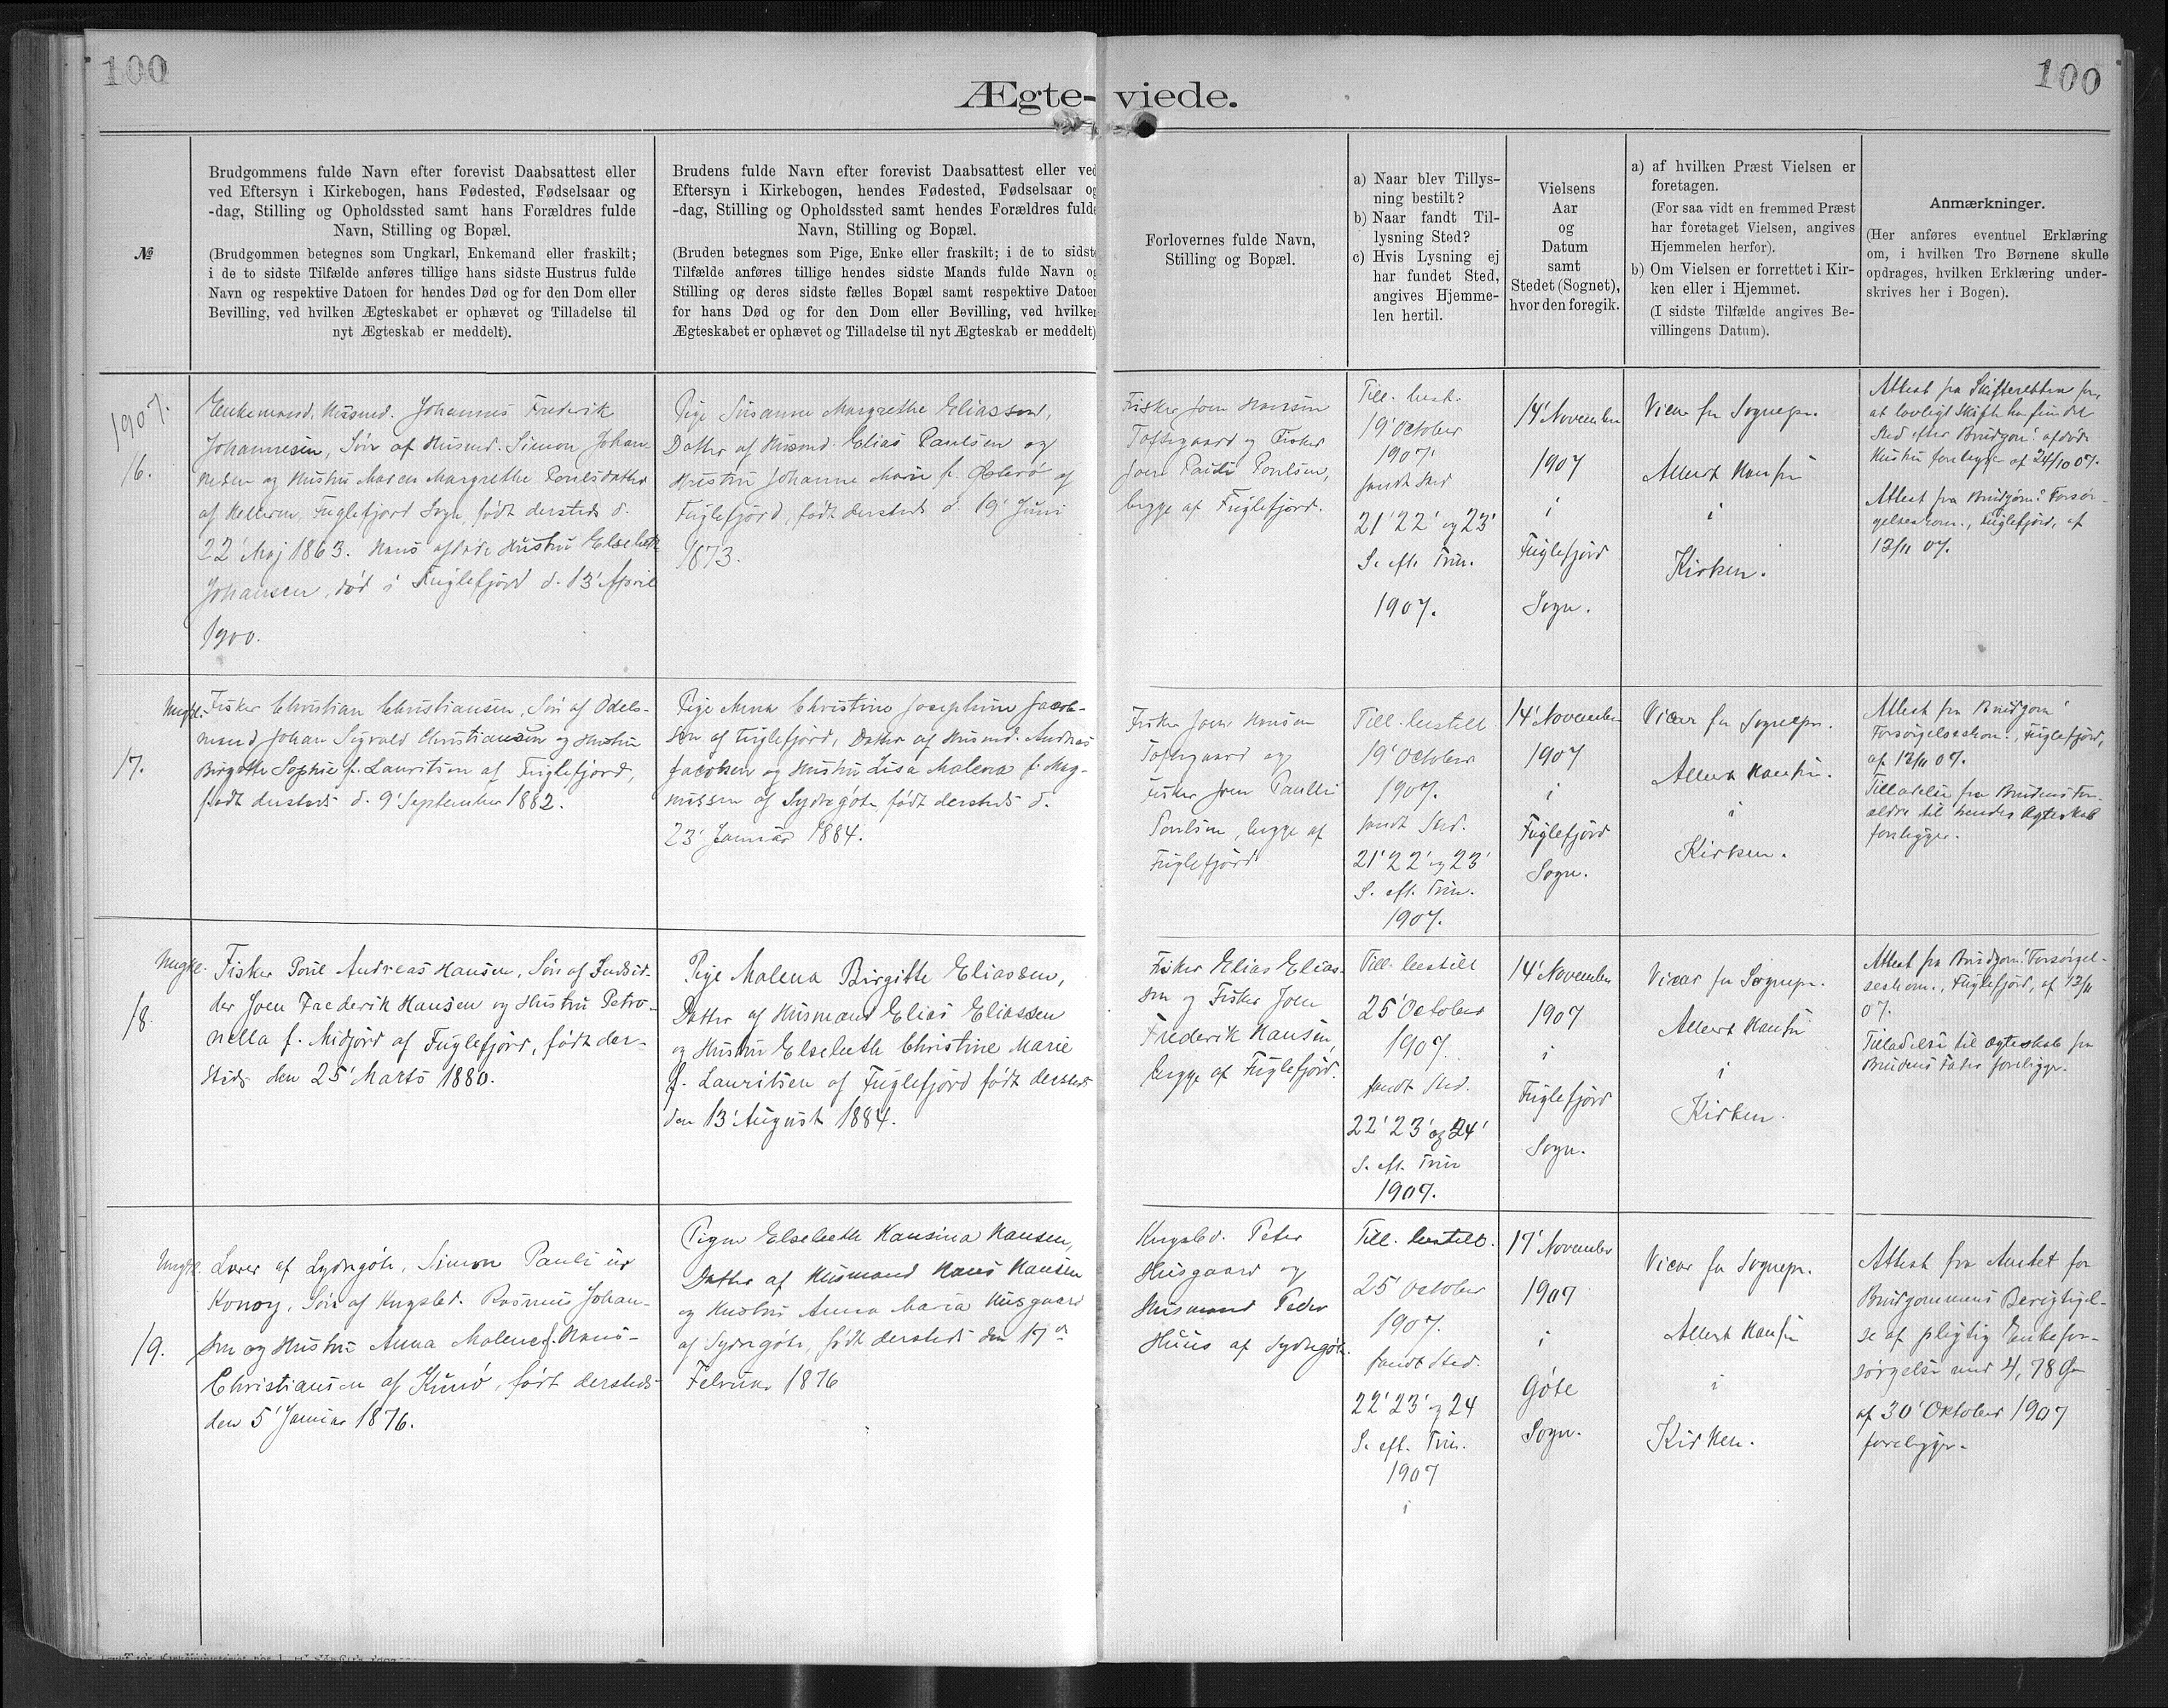 100
100
Ægte-viede.
№
Brudgommens fulde Navn efter forevist Daabsattest eller
ved Eftersyn i Kirkebogen, hans Fødested, Fødselsaar og
-dag, Stilling og Opholdssted samt hans Forældres fulde
Navn, Stilling og Bopæl.
(Brudgommen betegnes som Ungkarl, Enkemand eller fraskilt;
i de to sidste Tilfælde anføres tillige hans sidste Hustrus fulde
Navn og respektive Datoen for hendes Død og for den Dom eller
Bevilling, ved hvilken Ægteskabet er ophævet og Tilladelse til
nyt Ægteskab er meddelt).
Brudens fulde Navn efter forevist Daabsattest eller ved
Eftersyn i Kirkebogen, hendes Fødested, Fødselsaar og
-dag, Stilling og Opholdssted samt hendes Forældres fulde
Navn, Stilling og Bopæl.
(Bruden betegnes som Pige, Enke eller fraskilt; i de to sidste
Tilfælde anføres tillige hendes sidste Mands fulde Navn og
Stilling og deres sidste fælles Bopæl samt respektive Datoen
for hans Død og for den Dom eller Bevilling, ved hvilken
Ægteskabet er ophævet og Tilladelse til nyt Ægteskab er meddelt)
Forlovernes fulde Navn,
Stilling og Bopæl.
a) Naar blev Tillys-
ning bestilt?
b) Naar fandt Til-
lysning Sted?
c) Hvis Lysning ej
har fundet Sted,
angives Hjemme-
len hertil.
Vielsens
Aar
og
Datum
samt
Stedet (Sognet),
hvor den foregik.
a) af hvilken Præst Vielsen er
foretagen.
(For saa vidt en fremmed Præst
har foretaget Vielsen, angives
Hjemmelen herfor).
b) Om Vielsen er forrettet i Kir-
ken eller i Hjemmet.
(I sidste Tilfælde angives Be-
villingens Datum).
Anmærkninger.
(Her anføres eventuel Erklæring
om, i hvilken Tro Børnene skulle
opdrages, hvilken Erklæring under-
skrives her i Bogen).
1907.
16.
Enkemand, Husmd. Johannes Frederik
Johannesen, Søn af Husmd. Simon Johan-
nesen og Hustru Maren Margrethe Poulsdatter
af Hellerne, Fuglefjord Sogn, født dersteds d.
22' Maj 1863. Hans afdøde Hustru Elsebeth
Johansen, død i Fuglefjord d. 13' April
1900.
Pige Susanne Margrethe Eliassen,
Datter af Husmd. Elias Paulsen og
Hustru Johanne Marie f. Østerø af
Fuglefjord, født dersteds d. 19' Juni
1873.
Fisker Joen Hansen
Toftegaard og Fisker
Joen Pauli Poulsen,
begge af Fuglefjord.
Till. best.
19' October
1907.
fandt Sted
21' 22' og 23'
S. eft. Trin.
1907.
14' November
1907
i
Fuglefjord
Sogn.
Vicar for Sognepr.
Albert Hansen
i
Kirken.
Attest fra Skifteretten for,
at lovligt Skifte har fundet
Sted efter Brudgom.' afdøde
Hustru foreligger af 24/10 07.
Attest fra Brudgom.' Forsør-
gelseskom., Fuglefjord, af
12/11 07.
17.
Ungk. Fisker Christian Christiansen, Søn af Odels-
mand Johan Sigvald Christiansen og Hustru
Birgitte Sophie f. Lauritsen af Fuglefjord,
født dersteds d. 9' September 1882.
Pige Anna Christine Josephine Jacob-
sen af Fuglefjord, Datter af Husmd. Andreas
Jacobsen og Hustru Lisa Malena f. Mag-
nussen af Sydregøte, født dersteds d.
23' Januar 1884.
Fisker Joen Hansen
Toftegaard og
Fisker Joen Paulli
Poulsen, begge af
Fuglefjord
Till. bestilt
19' October
1907.
fandt Sted.
21' 22' og 23'
S. eft. Trin.
1907.
14' November
1907
i
Fuglefjord
Sogn.
Vicar for Sognepr.
Albert Hansen.
i
Kirken.
Attest fra Brudgom.'
Forsørgelseskom., Fuglefjord,
af 12/11 07.
Tilladelse fra Brudens For-
ældre til hendes Ægteskab
foreligger.
18.
Ungk. Fisker Poul Andreas Hansen, Søn af Indsid-
der Joen Frederik Hansen og Hustru Petro-
nella f. Midjord af Fuglefjord, født der-
steds den 25' Marts 1880.
Pige Malena Birgitte Eliassen,
Datter af Husmand Elias Eliassen
og Hustru Elsebeth Christine Marie
f. Lauritsen af Fuglefjord født dersteds
den 13' August 1884.
Fisker Elias Elias-
sen og Fisker Joen
Frederik Hansen,
begge af Fuglefjord.
Till. bestilt
25' October
1907.
fandt Sted.
22' 23' og 24'
S. eft. Trin
1907.
14' November
1907
i
Fuglefjord
Sogn.
Vicar for Sognepr.
Albert Hansen
i
Kirken.
Attest fra Brudgom.' Forsørgel-
seskom., Fuglefjord, af 12/11
07.
Tilladelse til Ægteskab fra
Brudens Fader foreligger.
19.
Ungk. Lærer af Sydregøte, Simon Pauli úr
Konoy, Søn af Kngsbd. Rasmus Johan-
sen og Hustru Anna Malene f. Hans-
Christiansen af Kunø, født dersteds
den 5' Januar 1876.
Pigen Elsebeth Hansina Hansen,
Datter af Husmand Hans Hansen
og Hustru Anna Maria Husgaard
af Sydregøte, født dersteds den 17de
Februar 1876
Kngsbd. Peter
Husgaard og
Husmand Peder
Huus af Sydregøte.
Till. bestilt.
25' October
1907.
fandt Sted.
22' 23' og 24
S. eft. Trin.
1907
i
17' November
1907
i
Gøte
Sogn.
Vicar for Sognepr.
Albert Hansen
i
Kirken.
Attest fra Amtet for
Brudgommens Berigtigel-
se af pligtig Enkefor-
sørgelse med 4,78 Øre
af 30' Oktober 1907
foreligger.